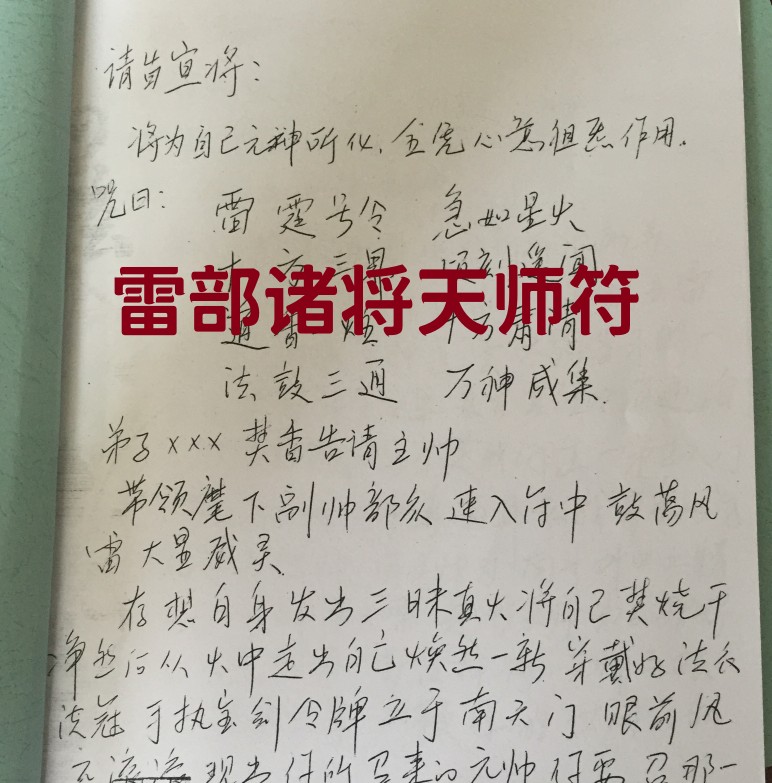 请首宣将：
将为自己元神所化，全凭心意组炁作用。
咒曰： 雷霆号令 急如星火
十方三界 顷刻遥闻
雷部诸将天师符
道香 烟
法鼓三通 万神咸集.
弟子xxx焚香告请主帅
带领麾下副帅部众速入符中鼓荡风
雷大显威灵
存想自身发出三昧真火将自己焚烧干
净然后从火中走出自己焕然一新穿戴好法衣
法冠手执宝剑令牌立于南天门眼前风
现出符所召来的元帅符要召那一